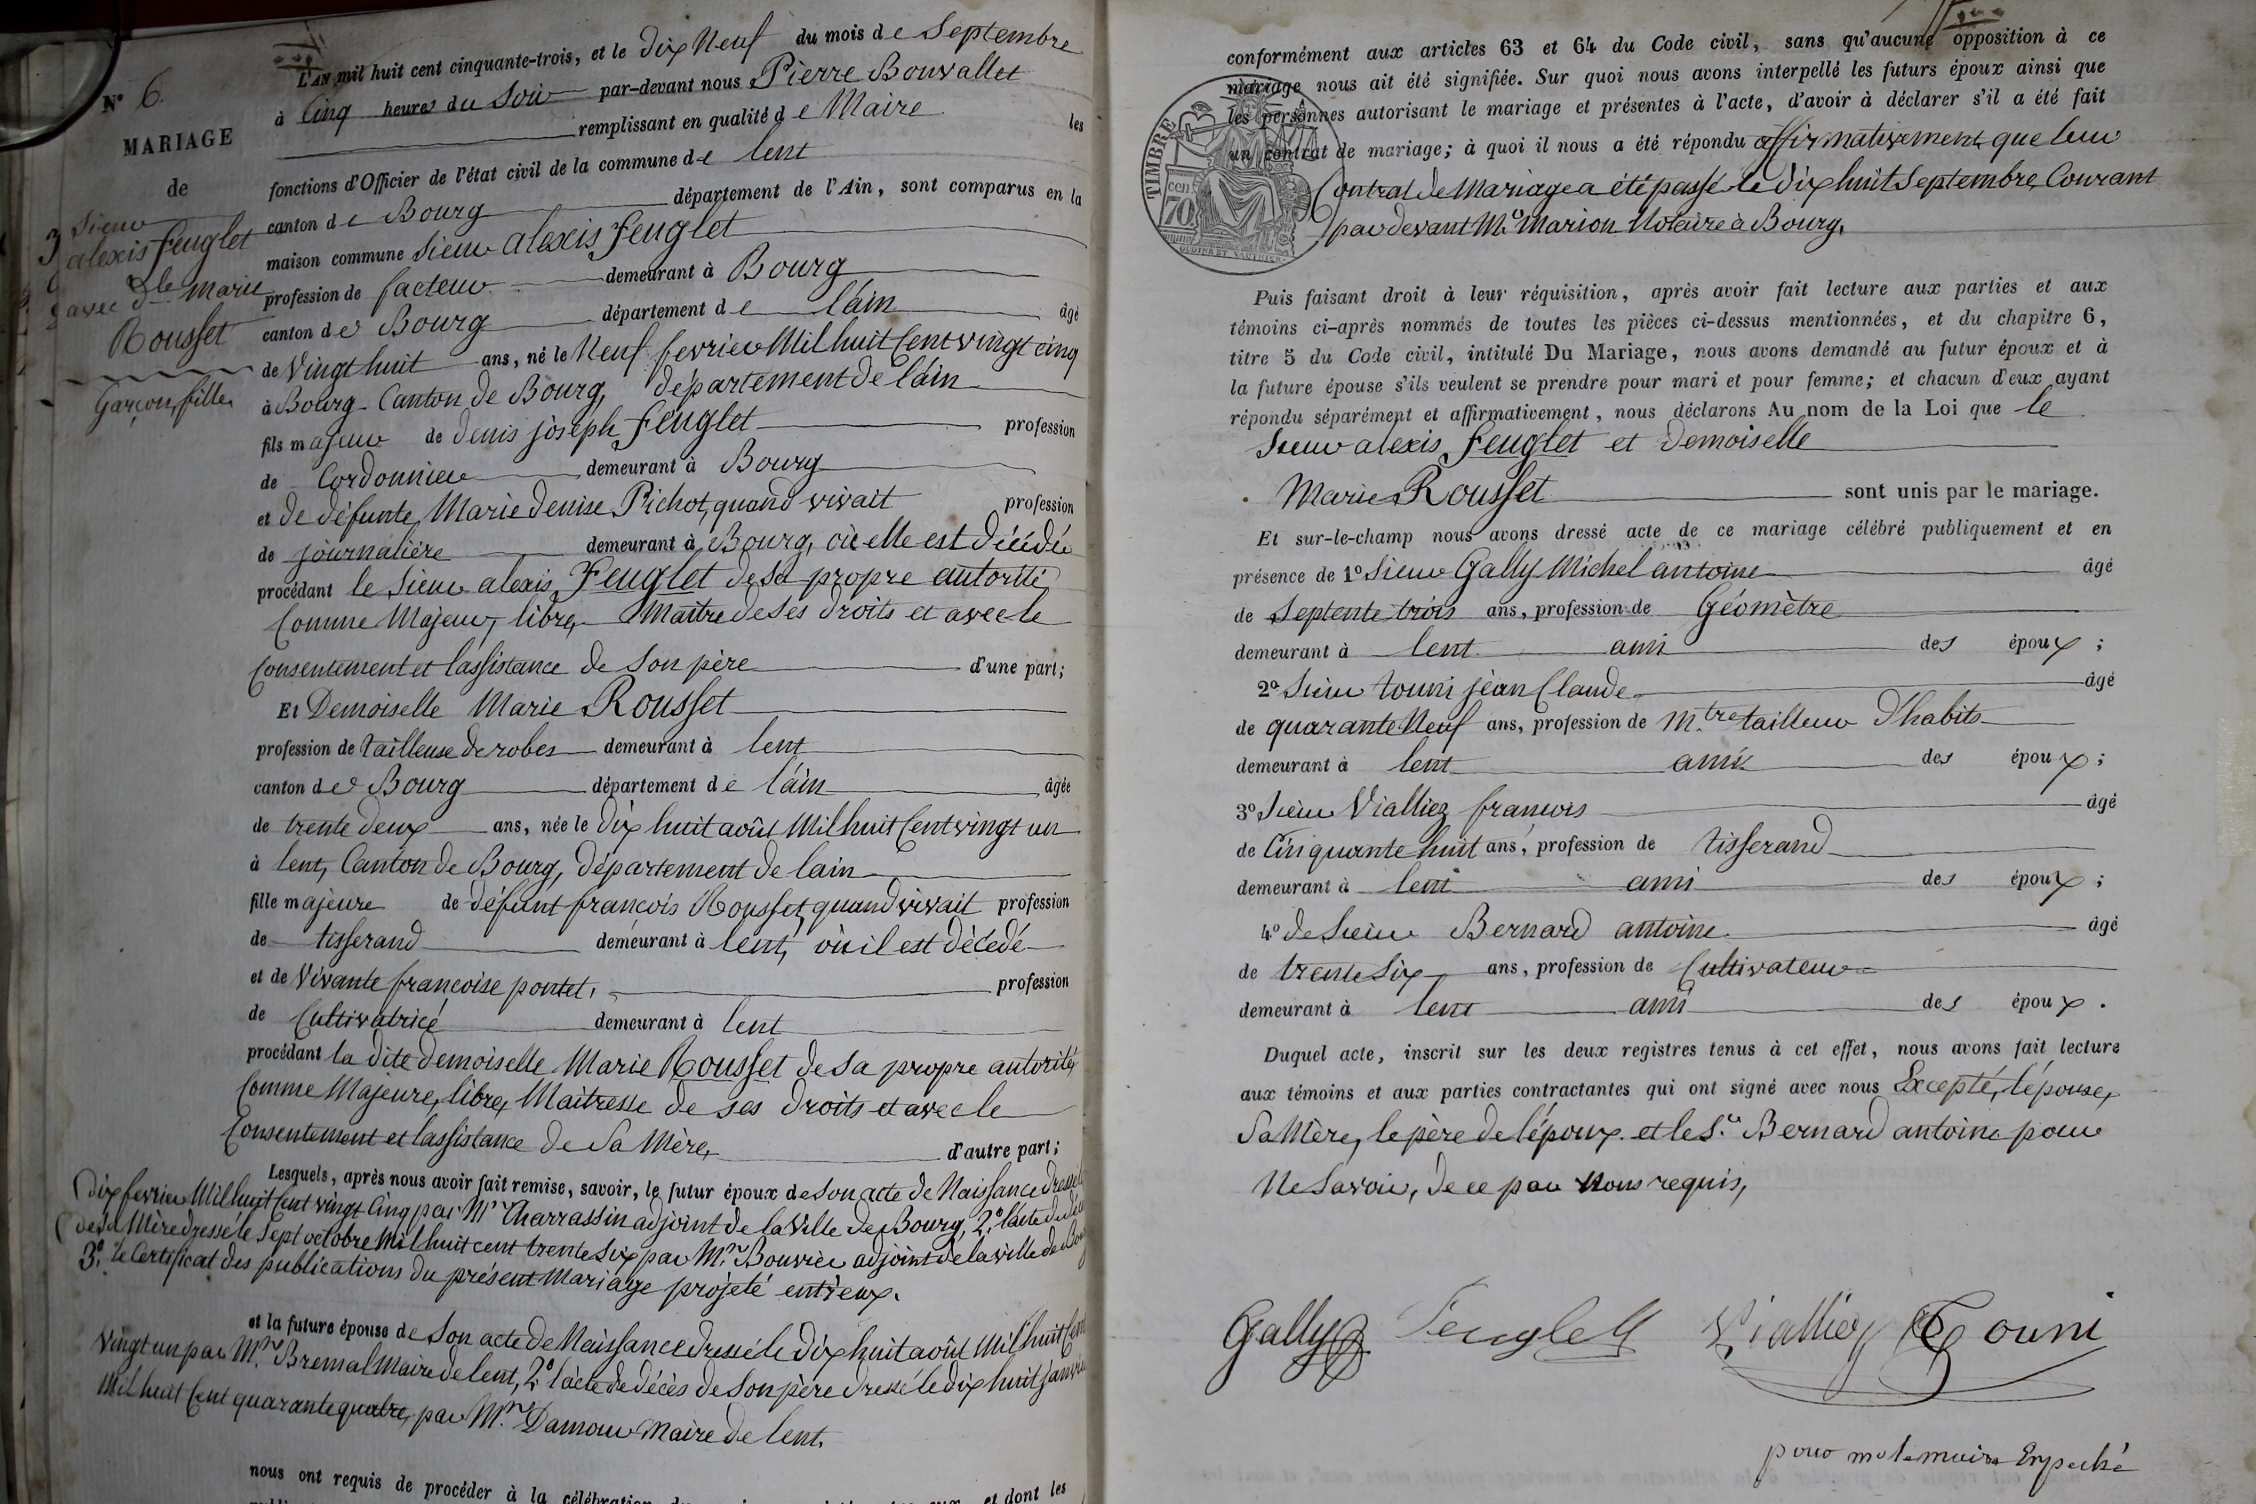 N° 6.
MARIAGE
de
Sieur
alexis Feuglet
avec dlle marie
Rousset
Garçon, fille
L'AN mil huit cent cinquante-trois, et le dix Neuf du mois de Septembre
à Cinq heures du Soir par-devant nous Pierre Bouvallet
remplissant en qualité de Maire les
fonctions d'Officier de l'état civil de la commune de lent
canton de Bourg département de l'Ain, sont comparus en la
maison commune Sieur alexis Feuglet
profession de facteur demeurant à Bourg
canton de Bourg département de l'ain âgé
de Vingt huit ans, né le Neuf fevrier Mil huit Cent vingt cinq
à Bourg Canton de Bourg, département de l'ain
fils majeur de denis joseph Feuglet profession
de Cordonnier demeurant à Bourg
et de défunte Marie denise Pichot, quand vivait profession
de journalière demeurant à Bourg, où elle est décédée
procédant le Sieur alexis Feuglet de sa propre autorité
Comme Majeur, libre, Maître de ses droits et avec le
Consentement et l'assistance de Son père d'une part;
Et Demoiselle Marie Rousset
profession de tailleuse de robes demeurant à lent
canton de Bourg département de l'ain âgée
de trente deux ans, née le dix huit août Mil huit Cent vingt un
à lent, Canton de Bourg, département de lain
fille majeure de défunt francois Rousset, quand vivait profession
de tisserand demeurant à lent, où il est décédé
et de Vivante francoise pontet, profession
de Cultivatrice demeurant à lent
procédant la dite demoiselle Marie Rousset de sa propre autorité,
Comme Majeure, libre, Maitresse de ses droits et avec le
Consentement et l'assistance de Sa Mère, d'autre part;
Lesquels, après nous avoir fait remise, savoir, le futur époux de son acte de Naissance dressé le
dix fevrier Mil huit Cent vingt Cinq par Mr Charrassin adjoint de la Ville de Bourg, 2° l'acte de
de sa Mère dressé le Sept octobre Mil huit cent trente Six par Mr Bouvier adjoint de la ville de
3° le Certificat des publications du présent Mariage projeté entr'eux.
et la future épouse de Son acte de Naissance dressé le dix huit août Mil huit Cent
Vingt un par Mr Bremal Maire de lent, 2° l'acte de décès de Son père dressé le dix huit Janvier
Mil huit Cent quarante quatre, par Mr Damour Maire de lent.
nous ont requis de procéder à la et dont les
conformément aux articles 63 et 64 du Code civil, sans qu'aucune opposition à ce
mariage nous ait été signifiée. Sur quoi nous avons interpellé les futurs époux ainsi que
les personnes autorisant le mariage et présentes à l'acte, d'avoir à déclarer s'il a été fait
un contrat de mariage; à quoi il nous a été répondu affirmativement que leur
Contrat de Mariage a été passé le dix huit Septembre Courant
par devant Me Marion Notaire à Bourg,
TIMBRE
cen
70
Puis faisant droit à leur réquisition, après avoir fait lecture aux parties et aux
témoins ci-après nommés de toutes les pièces ci-dessus mentionnées, et du chapitre 6,
titre 5 du Code civil, intitulé Du Mariage, nous avons demandé au futur époux et à
la future épouse s'ils veulent se prendre pour mari et pour femme; et chacun d'eux ayant
répondu séparément et affirmativement, nous déclarons Au nom de la Loi que le
Sieur alexis Feuglet et Demoiselle
Marie Rousset sont unis par le mariage.
Et sur-le-champ nous avons dressé acte de ce mariage célébré publiquement et en
présence de 1° Sieur Gally Michel antoine âgé
de Septente trois ans, profession de Géomètre
demeurant à lent ami des époux;
2° Sieur touni jean Claude âgé
de quarante Neuf ans, profession de M.tre tailleur d'habits
demeurant à lent ami des époux;
3° Sieur Vialliez francois âgé
de Cinquante huit ans, profession de tisserand
demeurant à lent ami des époux;
4° de Sieur Bernard antoine âgé
de trente Six ans, profession de Cultivateur
demeurant à lent ami des époux.
Duquel acte, inscrit sur les deux registres tenus à cet effet, nous avons fait lecture
aux témoins et aux parties contractantes qui ont signé avec nous Excepté, l'épouse,
Sa Mère, le père de l'époux et le Sr Bernard antoine pour
Ne Savoir, de ce par Nous requis,
Gally Feuglet Viallier Touni
pour mr le maire Enpeché